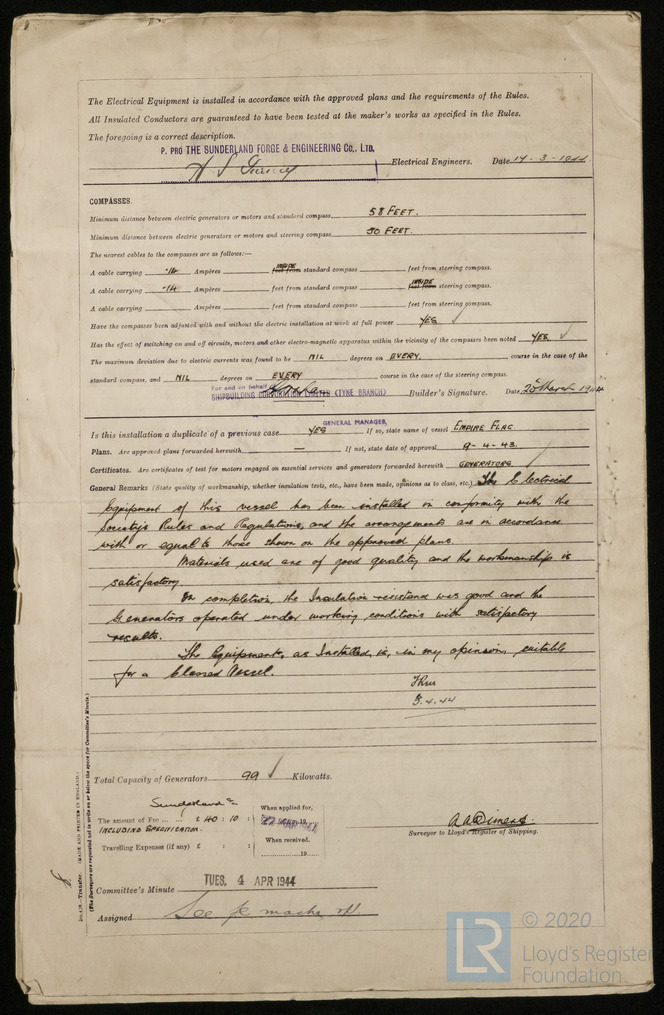 The Electrical Equipment is installed in accordance with the approved plans and the requirements of the Rules.
All Insulated Conductors are guaranteed to have been tested at the maker's works as specified in the Rules.
The foregoing is a correct description.
P. PRO THE SUNDERLAND FORGE & ENGINEERING CO., LTD.
Electrical Engineers. Date 14-3-1944
COMPASSES.
Minimum distance between electric generators or motors and standard compass 58 FEET.
Minimum distance between electric generators or motors and steering compass 50 FEET.
The nearest cables to the compasses are as follows:—
A cable carrying .14 Ampères INSIDE feet from standard compass feet from steering compass.
A cable carrying .14 Ampères feet from standard compass INSIDE feet from steering compass.
A cable carrying Ampères feet from standard compass feet from steering compass.
Have the compasses been adjusted with and without the electric installation at work at full power YES ✓
Has the effect of switching on and off circuits, motors and other electro-magnetic apparatus within the vicinity of the compasses been noted YES. ✓
The maximum deviation due to electric currents was found to be NIL degrees on EVERY. course in the case of the
standard compass, and NIL degrees on EVERY course in the case of the steering compass.
For and on behalf
SHIPBUILDING CORPORATION LIMITED (TYNE BRANCH) Builder's Signature. Date 20 March 1944
GENERAL MANAGER,
Is this installation a duplicate of a previous case YES If so, state name of vessel EMPIRE FLAG
Plans. Are approved plans forwarded herewith — If not, state date of approval 9-4-43.
Certificates. Are certificates of test for motors engaged on essential services and generators forwarded herewith GENERATORS ✓
General Remarks (State quality of workmanship, whether insulation tests, etc., have been made, opinions as to class, etc.) The Electrical
Equipment of this vessel has been installed in conformity with the
Society's Rules and Regulations, and the arrangements are in accordance
with or equal to those shown on the approved plans.
Materials used are of good quality and the workmanship is
satisfactory.
On completion, the Insulation resistance was good and the
Generators operated under working conditions with satisfactory
results.
The Equipment, as Installed, is, in my opinion, suitable
for a Classed Vessel.
3.4.44
Total Capacity of Generators 99 ✓ Kilowatts.
Sunderland
The amount of Fee ... ... £ 40 : 10 :
INCLUDING SPECIFICATION.
Travelling Expenses (if any) £ : :
When applied for,
When received,
19
Surveyor to Lloyd's Register of Shipping.
Committee's Minute TUES. 4 APR 1944
Assigned See
Transfer. (MADE AND PRINTED IN ENGLAND.)
(The Surveyors are requested not to write on or below the space for Committee's Minute.)
LR
© 2020
Lloyd's Register
Foundation